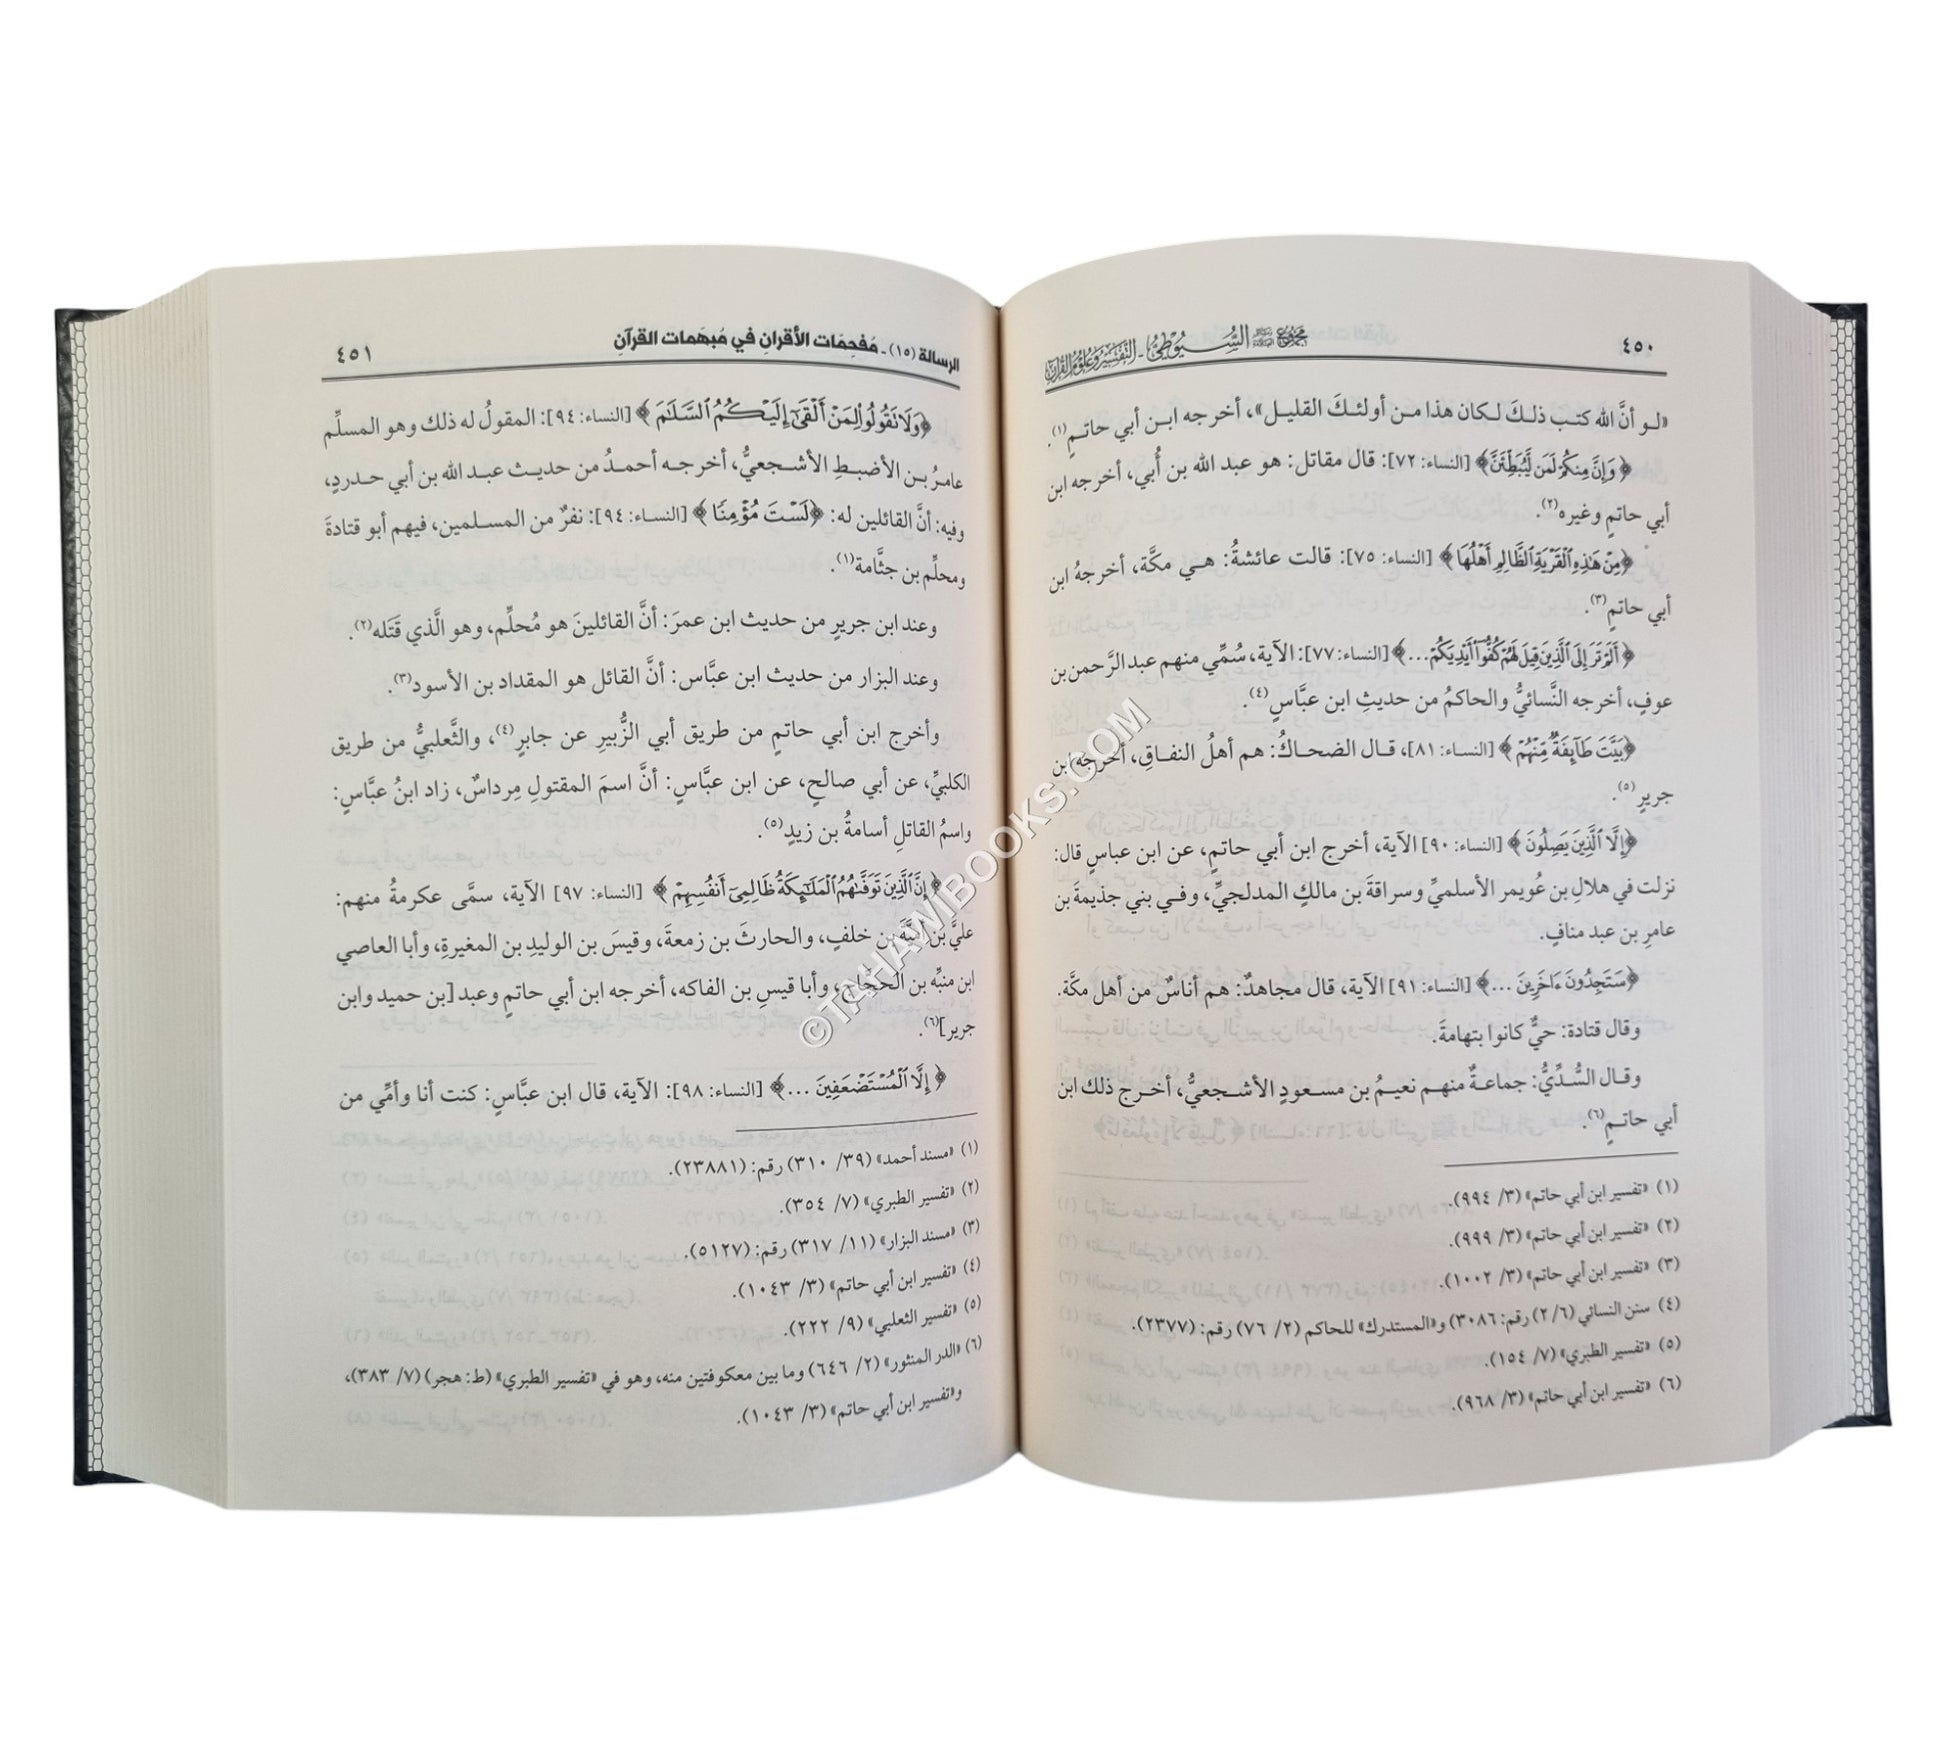 ٤٥٠
مجموع السيوطي - التفسير وعلوم القرآن
«لو أنَّ الله كتب ذلكَ لكان هذا من أولئكَ القليل»، أخرجه ابن أبي حاتمٍ(١).
﴿وَإِنَّ مِنكُمْ لَمَن لَّيُبَطِّئَنَّ﴾ [النساء: ٧٢]: قال مقاتل: هو عبد الله بن أُبي، أخرجه ابن
أبي حاتمٍ وغيره(٢).
﴿مِنْ هَٰذِهِ ٱلْقَرْيَةِ ٱلظَّالِمِ أَهْلُهَا﴾ [النساء: ٧٥]: قالت عائشةُ: هي مكَّة، أخرجهُ ابن
أبي حاتمٍ(٣).
﴿أَلَمْ تَرَ إِلَى ٱلَّذِينَ قِيلَ لَهُمْ كُفُّوٓا۟ أَيْدِيَكُمْ...﴾ [النساء: ٧٧]: الآية، سُمِّي منهم عبد الرَّحمن بن
عوفٍ، أخرجه النَّسائيُّ والحاكمُ من حديثِ ابن عبَّاسٍ(٤).
﴿بَيَّتَ طَآئِفَةٌ مِّنْهُمْ﴾ [النساء: ٨١]، قال الضحاكُ: هم أهلُ النفاقِ، أخرجه ابن
جريرٍ(٥).
﴿إِلَّا ٱلَّذِينَ يَصِلُونَ﴾ [النساء: ٩٠] الآية، أخرج ابن أبي حاتمٍ، عن ابن عباسٍ قال:
نزلت في هلالِ بن عُويمر الأسلميِّ وسراقةَ بن مالكٍ المدلجيِّ، وفي بني جذيمةَ بن
عامرِ بن عبد منافٍ.
﴿سَتَجِدُونَ ءَاخَرِينَ ...﴾ [النساء: ٩١] الآية، قال مجاهدٌ: هم أناسٌ من أهل مكَّة.
وقال قتادة: حيٌّ كانوا بتهامةَ.
وقال السُّدِّيُّ: جماعةٌ منهم نعيمُ بن مسعودٍ الأشجعيُّ، أخرج ذلك ابن
أبي حاتمٍ(٦).
(١) «تفسير ابن أبي حاتم» (٣/ ٩٩٤).
(٢) «تفسير ابن أبي حاتم» (٣/ ٩٩٩).
(٣) «تفسير ابن أبي حاتم» (٣/ ١٠٠٢).
(٤) سنن النسائي (٦/ ٢) رقم: ٣٠٨٦) و«المستدرك» للحاكم (٢/ ٧٦) رقم: (٢٣٧٧).
(٥) «تفسير الطبري» (٧/ ١٥٤).
(٦) «تفسير ابن أبي حاتم» (٣/ ٩٦٨).
الرسالة (١٥) - مُفحِمَات الأقرانِ في مُبهَمات القرآنِ
٤٥١
﴿وَلَا تَقُولُوا۟ لِمَنْ أَلْقَىٰٓ إِلَيْكُمُ ٱلسَّلَٰمَ﴾ [النساء: ٩٤]: المقولُ له ذلك وهو المسلِّم
عامرُ بن الأضبطِ الأشجعيُّ، أخرجه أحمدُ من حديث عبد الله بن أبي حدردٍ،
وفيه: أنَّ القائلين له: ﴿لَسْتَ مُؤْمِنًا﴾ [النساء: ٩٤]: نفرٌ من المسلمين، فيهم أبو قتادةَ
ومحلِّم بن جثَّامة(١).
وعند ابن جريرٍ من حديث ابن عمرَ: أنَّ القائلينَ هو مُحلِّم، وهو الَّذي قَتَله(٢).
وعند البزار من حديث ابن عبَّاس: أنَّ القائل هو المقداد بن الأسود(٣).
وأخرج ابن أبي حاتمٍ من طريق أبي الزُّبيرِ عن جابرٍ(٤)، والثَّعلبيُّ من طريق
الكلبيِّ، عن أبي صالحٍ، عن ابن عبَّاسٍ: أنَّ اسمَ المقتولِ مِرداسٌ، زاد ابنُ عبَّاسٍ:
واسمُ القاتلِ أسامةُ بن زيدٍ(٥).
﴿إِنَّ ٱلَّذِينَ تَوَفَّىٰهُمُ ٱلْمَلَٰٓئِكَةُ ظَالِمِىٓ أَنفُسِهِمْ﴾ [النساء: ٩٧] الآية، سمَّى عكرمةُ منهم:
عليَّ بن أميَّةَ بن خلفٍ، والحارثَ بن زمعةَ، وقيسَ بن الوليدِ بن المغيرةِ، وأبا العاصي
ابن منبِّه بن الحجَّاج، وأبا قيسِ بن الفاكه، أخرجه ابن أبي حاتمٍ وعبد [بن حميد وابن
جرير](٦).
﴿إِلَّا ٱلْمُسْتَضْعَفِينَ ...﴾ [النساء: ٩٨]: الآية، قال ابن عبَّاسٍ: كنت أنا وأمِّي من
(١) «مسند أحمد» (٣٩/ ٣١٠) رقم: (٢٣٨٨١).
(٢) «تفسير الطبري» (٧/ ٣٥٤).
(٣) «مسند البزار» (١١/ ٣١٧) رقم: (٥١٢٧).
(٤) «تفسير ابن أبي حاتم» (٣/ ١٠٤٣).
(٥) «تفسير الثعلبي» (٩/ ٢٢٢).
(٦) «الدر المنثور» (٢/ ٦٤٦) وما بين معكوفتين منه، وهو في «تفسير الطبري» (ط: هجر) (٧/ ٣٨٣)،
و«تفسير ابن أبي حاتم» (٣/ ١٠٤٣).
©TAHAMBOOKS.COM